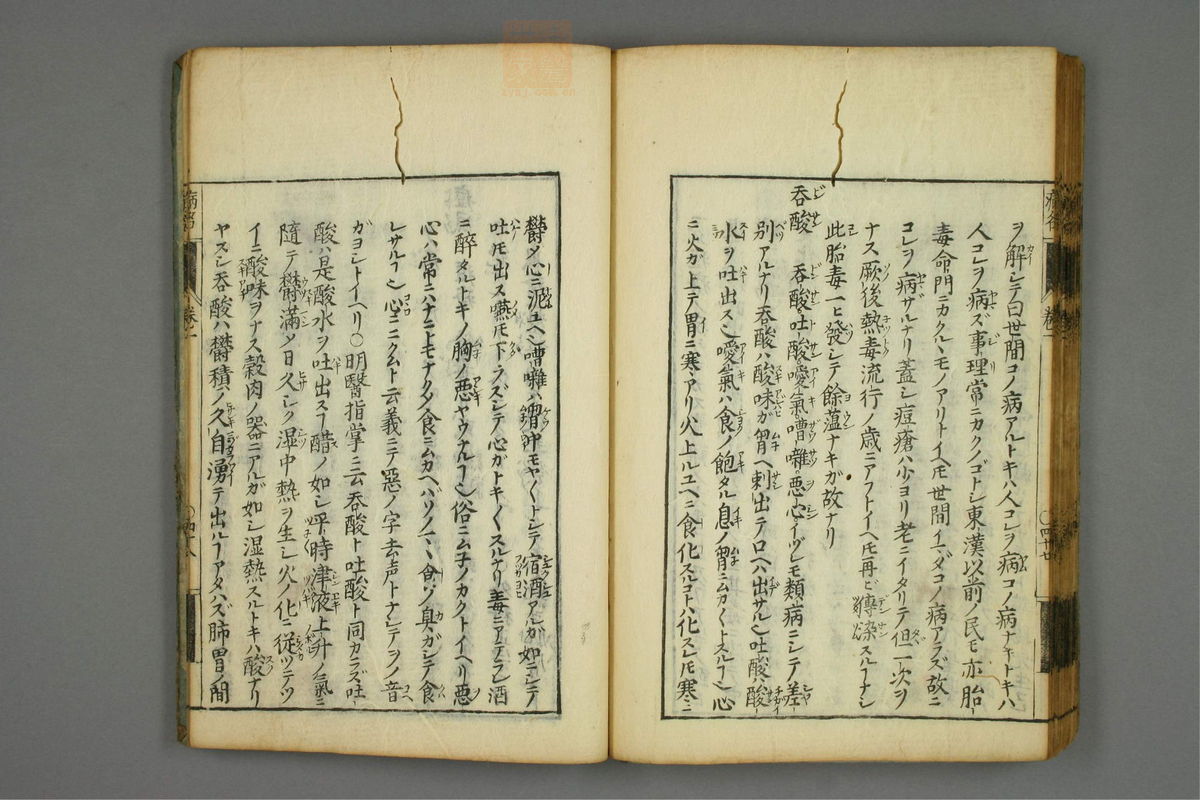 ヲ解シテ曰世間コノ病アルトキハ人コレヲ病コノ病ナキトキハ
人コレヲ病ズ事理常ニカクノゴトシ東漢以前ノ民モ亦胎
毒命門ニカクルヽモノアリトイヘ𪜈世間イマダコノ病アラズ故ニ
コレヲ病ザルナリ蓋シ痘瘡ハ少ヨリ老ニイタリテ但一次ヲ
ナス厥後熱毒流行ノ歳ニアフトイヘ𪜈再ビ傳染スルーナシ
此胎毒一ヒ發シテ餘薀ナキガ故ナリ
呑酸 呑酸吐酸噯氣嘈囃悪心イヅレモ類病ニシテ差
別アルナリ呑酸ハ酸味ガ胃ヘ刺出テロヘハ出サル也吐酸ハ酸
水ヲ吐出ス也噯氣ハ食ノ飽タル息ノ胃ニムカヘトスルー也心
ニ火ガ上テ胃ニ寒アリ火上ルユヘニ食化スルコトハ化スレ𪜈寒ニ
鬱メ心ニ泥ユヘ也嘈囃ハ溜飲モヤ〱トシテ宿酒アルガ如ニシテ
吐𪜈出ス嚥𪜈下ラズシテ心ガトキ〱スルナリ毒ニアテラレ酒
ニ醉タルトキノ胸ノ悪ヤウナルー也俗ニムネノカクトイヘリ悪
心ハ常ニハナニトモナクメ食ニムカヘバソノマヽ食ゾ臭ガシテ食
レサルー也心ニニクムト云義ニテ惡ノ字去声トナシテヲノ音
ガヨシトイヘリ〇明醫指掌ニ云呑酸ト吐酸ト同カラズ吐
酸ハ是酸水ヲ吐出スー醋ノ如シ平時津液上升ノ氣ニ
隨テ鬱満メ日久シク湿中熱ヲ生シ火ノ化ニ從ツテツ
イニ酸味ヲナス穀肉ノ器ニアルガ如シ湿熱スルトキハ酸ナリ
ヤスシ呑酸ハ鬱積ノ久自湧テ出ルーアタハズ肺胃ノ間
卷一
〇四十七
卷一
〇四十八